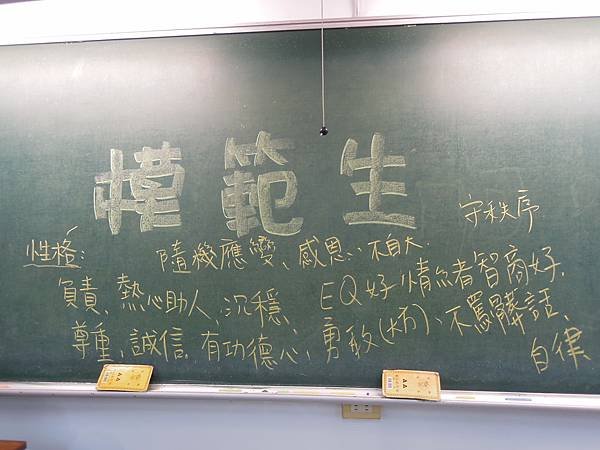 模範生
守秩序
性格: 隨幾應變、感恩、不自大
負責、熱心助人、沉穩、EQ好情緒智商好、
尊重、誠信、有功德心、勇敢(大方)、不罵髒話、
自律